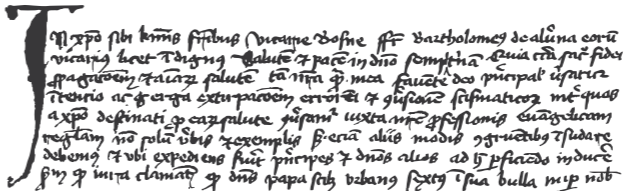 In xpo sibi kmis fribus vicarie Bosne ffr Bartholomeus de aluna eoru
vicarius licet Indignus Salute et pace in dno sempitna Quia circa sac fidei
ppagacoem et aiarz salute ta nra q mea favente deo principal vsatur
itencio ac gerga extirpacoem erroru et gusione scismaticor int quos
a xpo destinati p earz salute gusant iuxta nre pfessionis euagelicam
regulam no solu vbis et exemplis s ecia aliis modis ogruentibus isudare
debemus et vbi expediens fuit principes et dnos alios ad h pficiendo inducere
Sm q iura clamant q dns papa scilz vrbanus sextus i sua bulla mip nob